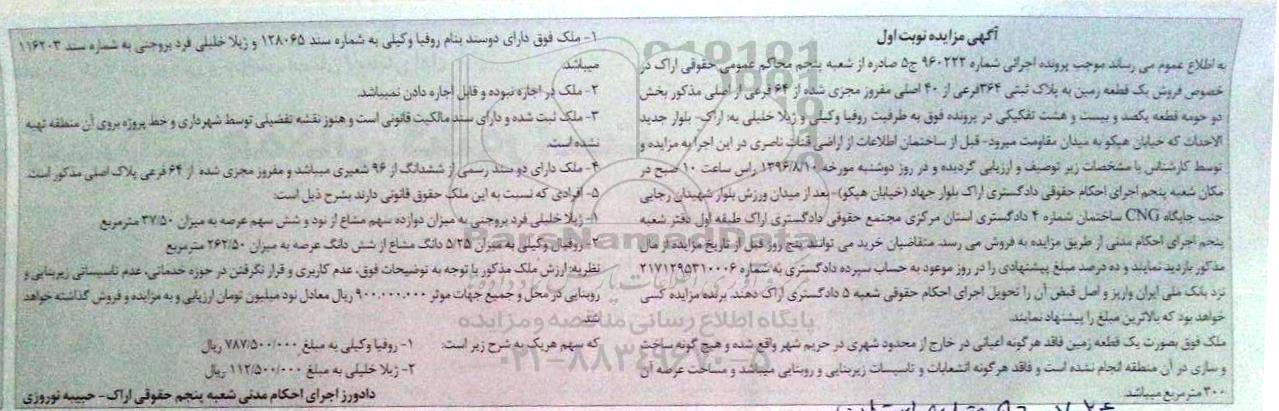 آگهی مزایده نوبت اول
به اطلاع عموم می رساند موجب پرونده اجرائی شماره ۹۶۰۲۲۲ ج۵ صادره از شعبه پنجم محاکم عمومی حقوقی اراک در
خصوص فروش یک قطعه زمین به پلاک ثبتی ۳۶۴فرعی از ۴۰ اصلی مفروز مجزی شده از ۶۴ فرعی از اصلی مذکور بخش
دو حومه قطعه یکصد و بیست و هشت تفکیکی در پرونده فوق به ظرفیت روفیا وکیلی و ژیلا خلیلی به: اراک- بلوار جدید
الاحداث که خیابان هپکو به میدان مقاومت میرود- قبل از ساختمان اطلاعات از اراضی قنات ناصری در این اجرا به مزایده و
توسط کارشناس با مشخصات زیر توصیف و ارزیابی گردیده و در روز دوشنبه مورخه ۱۳۹۶/۸/۱۰ راس ساعت ۱۰ صبح در
مکان شعبه پنجم اجرای احکام حقوقی دادگستری اراک بلوار جهاد (خیابان هپکو)-بعد از میدان ورزش بلوار شهیدان رجایی
جنب جایگاه CNG ساختمان شماره ۴ دادگستری استان مرکزی مجتمع حقوقی دادگستری اراک طبقه اول دفتر شعبه
پنجم اجرای احکام مدنی از طریق مزایده به فروش می رسد. متقاضیان خرید می توانند پنج روز قبل از تاریخ مزایده از مال
مذکور بازدید نمایند و ده درصد مبلغ پیشنهادی را در روز موعود به حساب سپرده دادگستری به شماره ۲۱۷۱۲۹۵۳۱۰۰۰۶
نزد بانک ملی ایران واریز و اصل قبض آن را تحویل اجرای احکام حقوقی شعبه ۵ دادگستری اراک دهند. برنده مزایده کسی
خواهد بود که بالاترین مبلغ را پیشنهاد نمایند.
ملک فوق بصورت یک قطعه زمین فاقد هرگونه اعیانی در خارج از محدود شهری در حریم شهر واقع شده و هیچ گونه ساخت
و سازی در آن منطقه انجام نشده است و فاقد هرگونه انشعابات و تاسیسات زیربنایی و روبنایی میباشد و مساحت عرصه آن
۳۰۰ مترمربع میباشد.
۱- ملک فوق دارای دوسند بنام روفیا وکیلی به شماره سند ۱۲۸۰۶۵ و ژیلا خلیلی فرد بروجنی به شماره سند ۱۱۶۲۰۳
میباشد.
۲- ملک در اجاره نبوده و قابل اجاره دادن نمیباشد.
۳- ملک ثبت شده و دارای سند مالکیت قانونی است و هنوز نقشه تفضیلی توسط شهرداری و خط پروژه بروی آن منطقه تهیه
نشده است.
۴- ملک دارای دو سند رسمی از ششدانگ از ۹۶ شعیری میباشد و مفروز مجزی شده از ۶۴ فرعی پلاک اصلی مذکور است.
۵- افرادی که نسبت به این ملک حقوق قانونی دارند بشرح ذیل است:
۱- ژیلا خلیلی فرد بروجنی به میزان دوازده سهم مشاع از نود و شش سهم عرصه به میزان ۳۷/۵۰ مترمربع
۲- روفیان وکیلی به میزان ۵/۲۵ دانگ مشاع از شش دانگ عرصه به میزان ۲۶۲/۵۰ مترمربع
نظریه: ارزش ملک مذکور با توجه به توضیحات فوق، عدم کاربری و قرار نگرفتن در حوزه خدماتی، عدم تاسیساتی زیربنایی و
روبنایی در محل و جمیع جهات موثر ۹۰۰.۰۰۰.۰۰۰ ریال معادل نود میلیون تومان ارزیابی و به مزایده و فروش گذاشته خواهد
شد.
که سهم هریک به شرح زیر است: ۱- روفیا وکیلی به مبلغ ۷۸۷/۵۰۰/۰۰۰ ریال
۲- ژیلا خلیلی به مبلغ ۱۱۲/۵۰۰/۰۰۰ ریال
دادورز اجرای احکام مدنی شعبه پنجم حقوقی اراک- حبیبه نوروزی
ParsNamadData
پایگاه اطلاع رسانی مناقصه و مزایده
۰۲۱-۸۸۳۴۹۶۷۰-۵